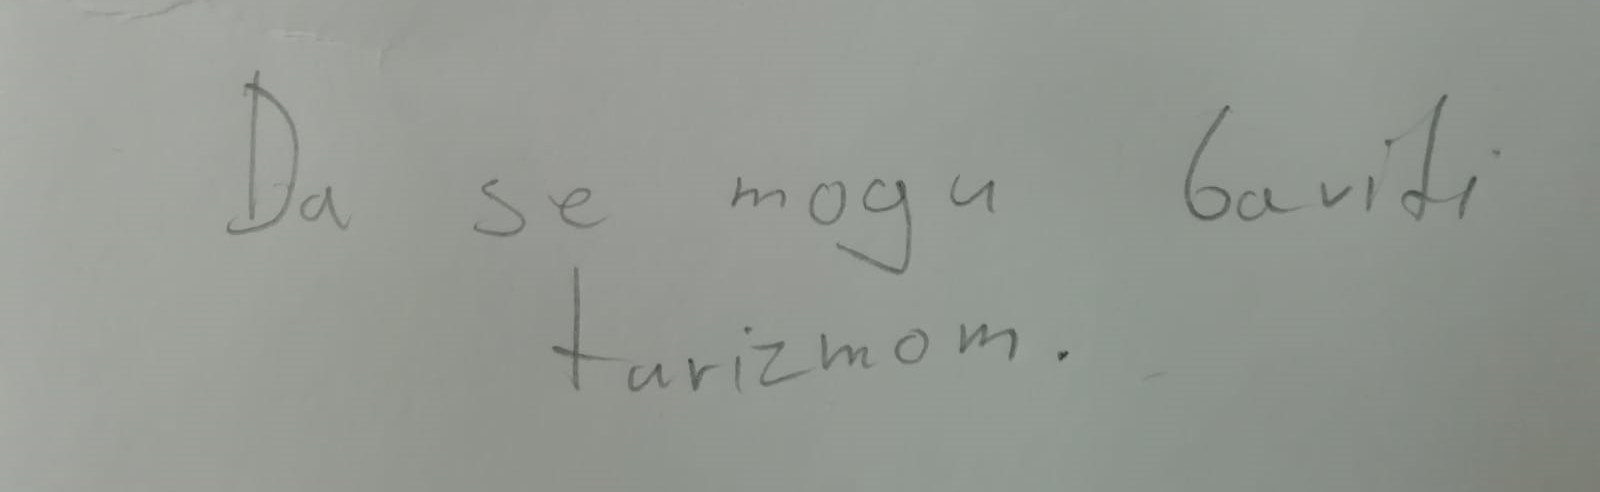 Da se mogu baviti
turizmom.